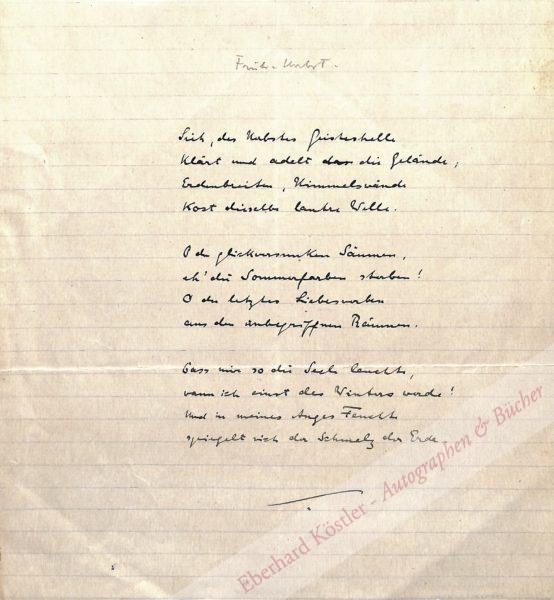 Früh-Herbst.
Sieh, des Herbstes Geisteshelle
Klärt und adelt das die Gelände;
Erdenbreiten, Himmelswände
Kost dieselbe lautre Welle.
O du glückversunken Säumen,
eh' die Sommerfarben sterben!
O du letztes Liebeswerben
aus den unbegriffnen Räumen.
Lass mir so die Seele leuchten,
wann ich einst des Winters werde!
Und in meines Auges Feuchte
spiegelt sich der Schmelz der Erde.
Eberhard Köstler - Autographen & Bücher